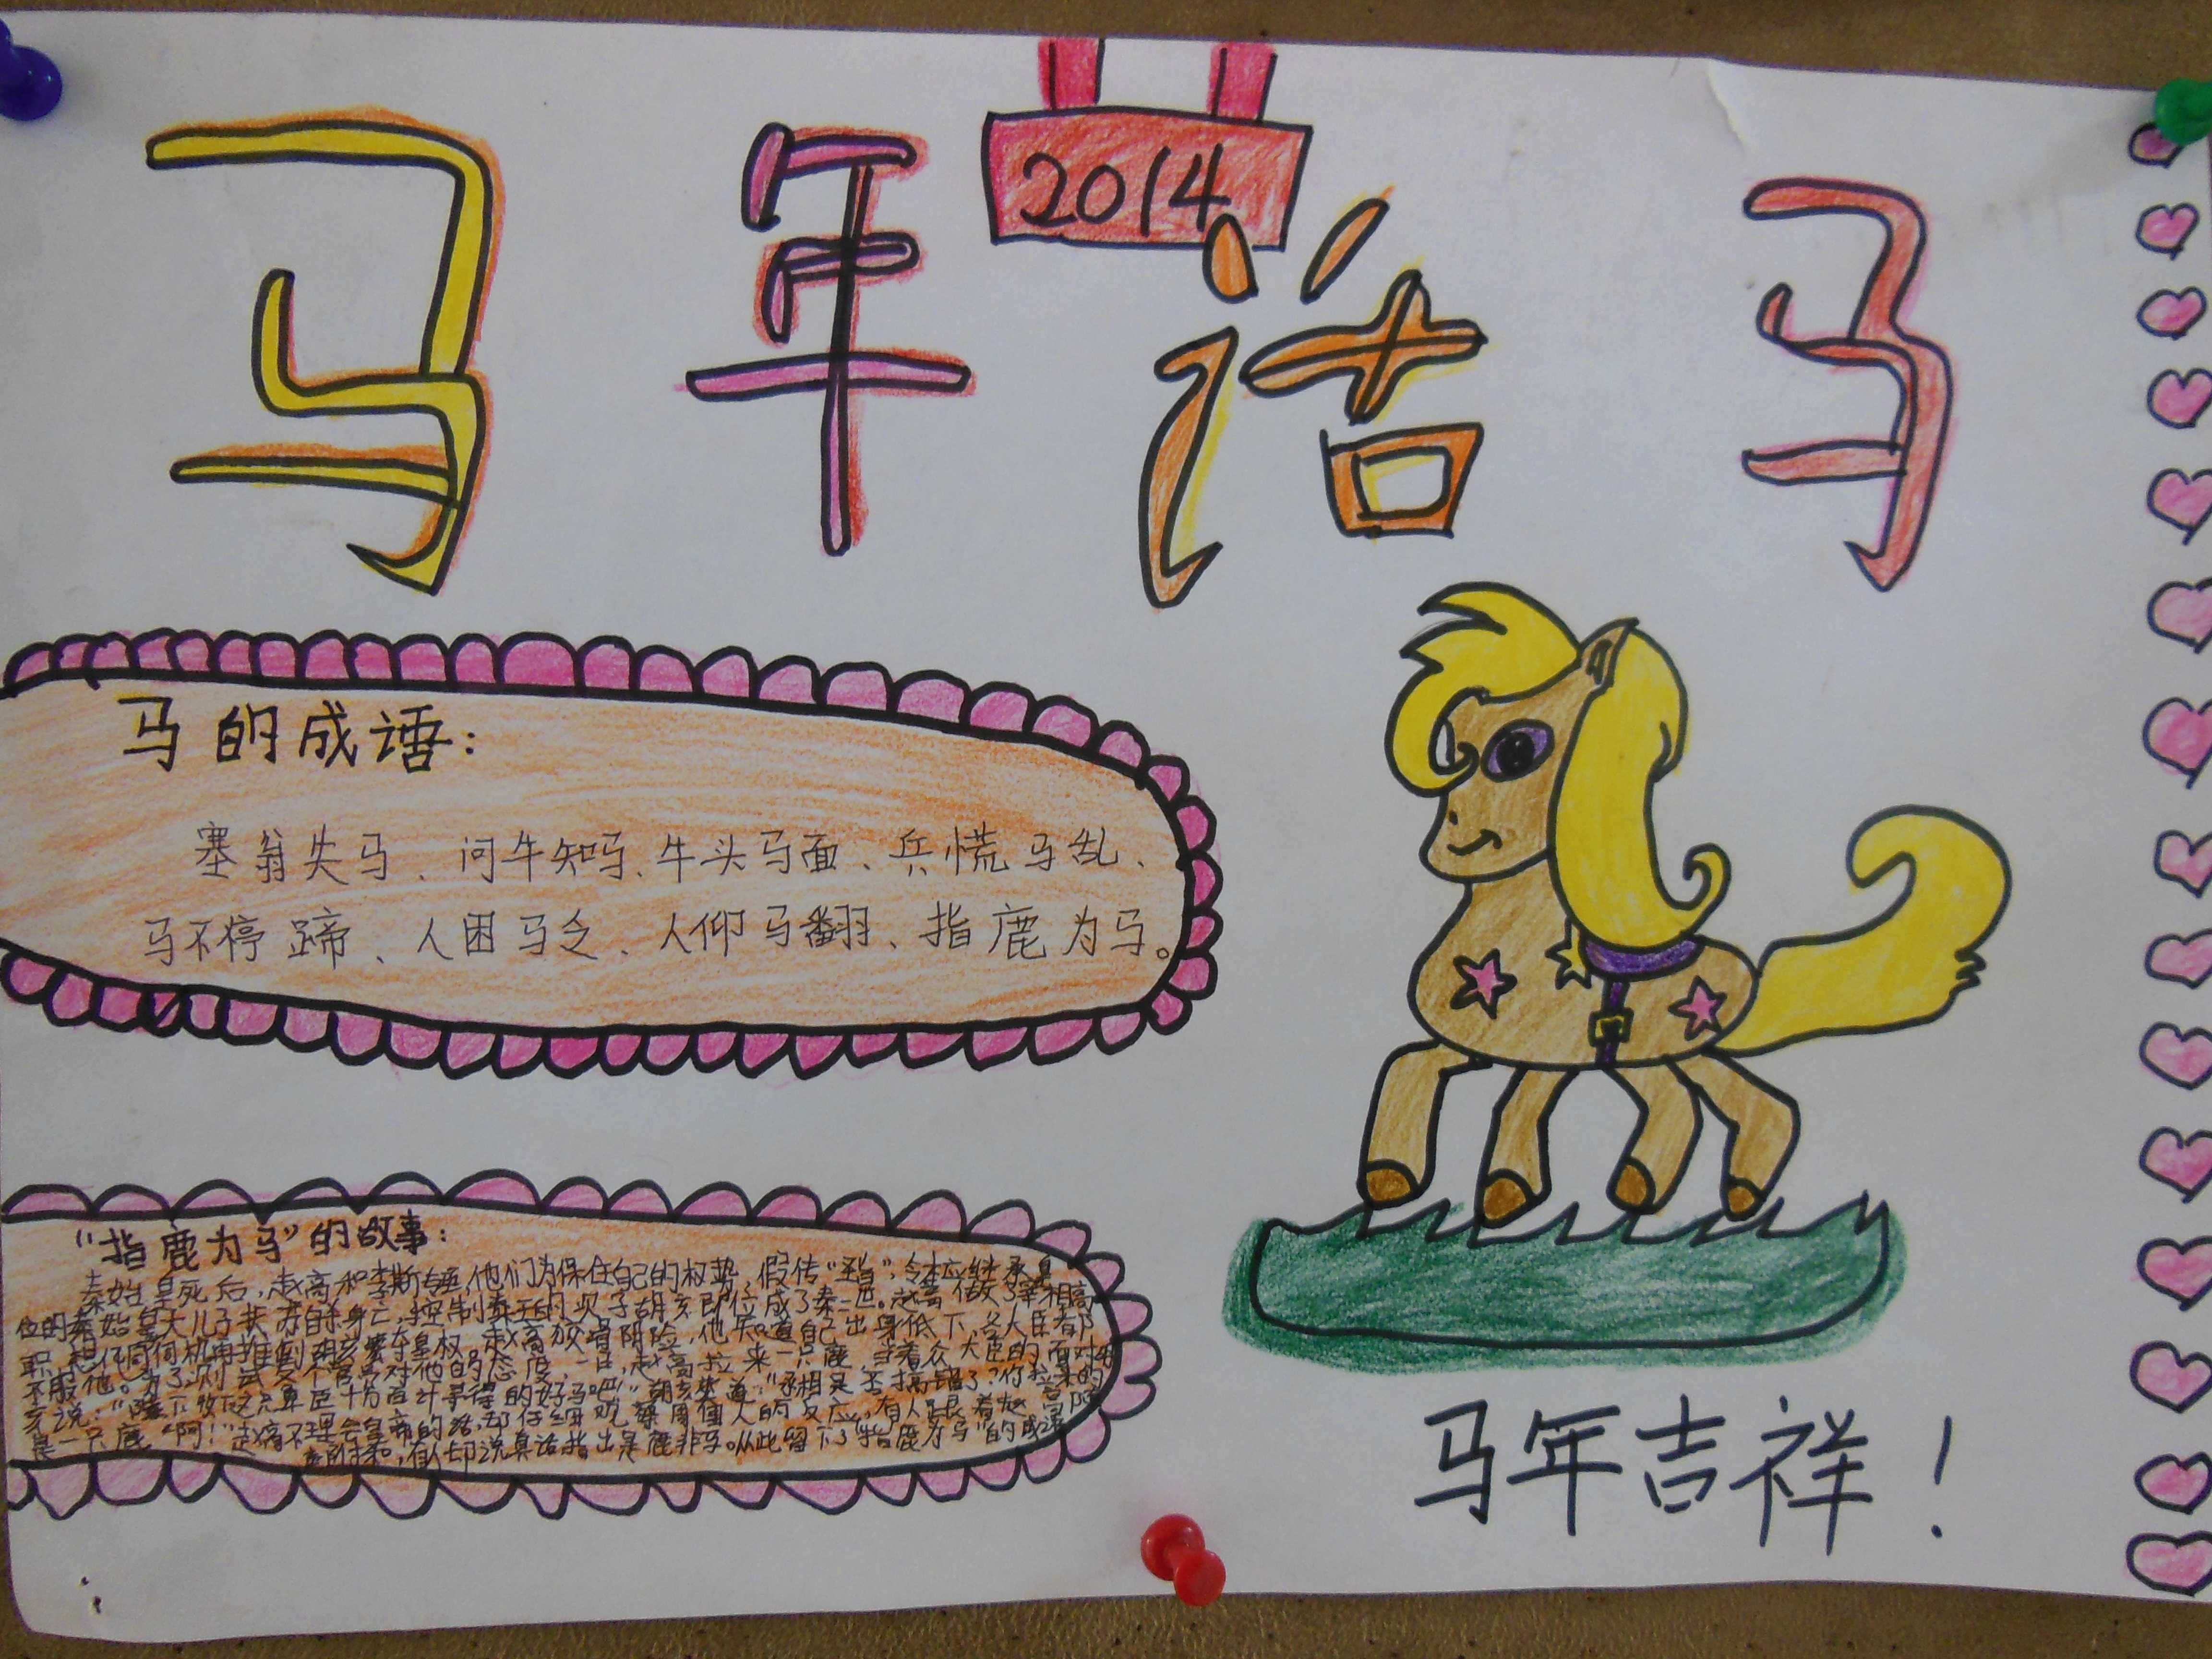 2014
马年话马
马的成语:
塞翁失马、问牛知马、牛头马面、兵慌马乱、
马不停蹄、人困马乏、人仰马翻、指鹿为马。
“指鹿为马”的故事:
秦始皇死后,赵高和李斯,他们为保住自己的权势,假传“圣旨”,令本应继承皇
位的秦始皇大儿子扶苏自杀身亡,控制秦王的次子胡亥即位成了秦二世。赵高做了宰相高
职,想伺何机再推倒胡亥篡夺皇权。赵高狡猾阴险,他知道自己出身低下,各大臣都
不服他。为了测试文个官员对他的态度,一日,赵高拉来一只鹿,当着众大臣的面对胡
亥说:“陛下收下这只臣千方百计寻得的好马吧!”胡亥笑道:“丞相是否搞错了?你拉来的
是一只鹿啊!”赵高不理会皇帝的话,却仔细观察周围人的反应,有人跟着赵高
附和,有人却说真话指出是鹿非马。从此留下了“指鹿为马”的成语
马年吉祥!